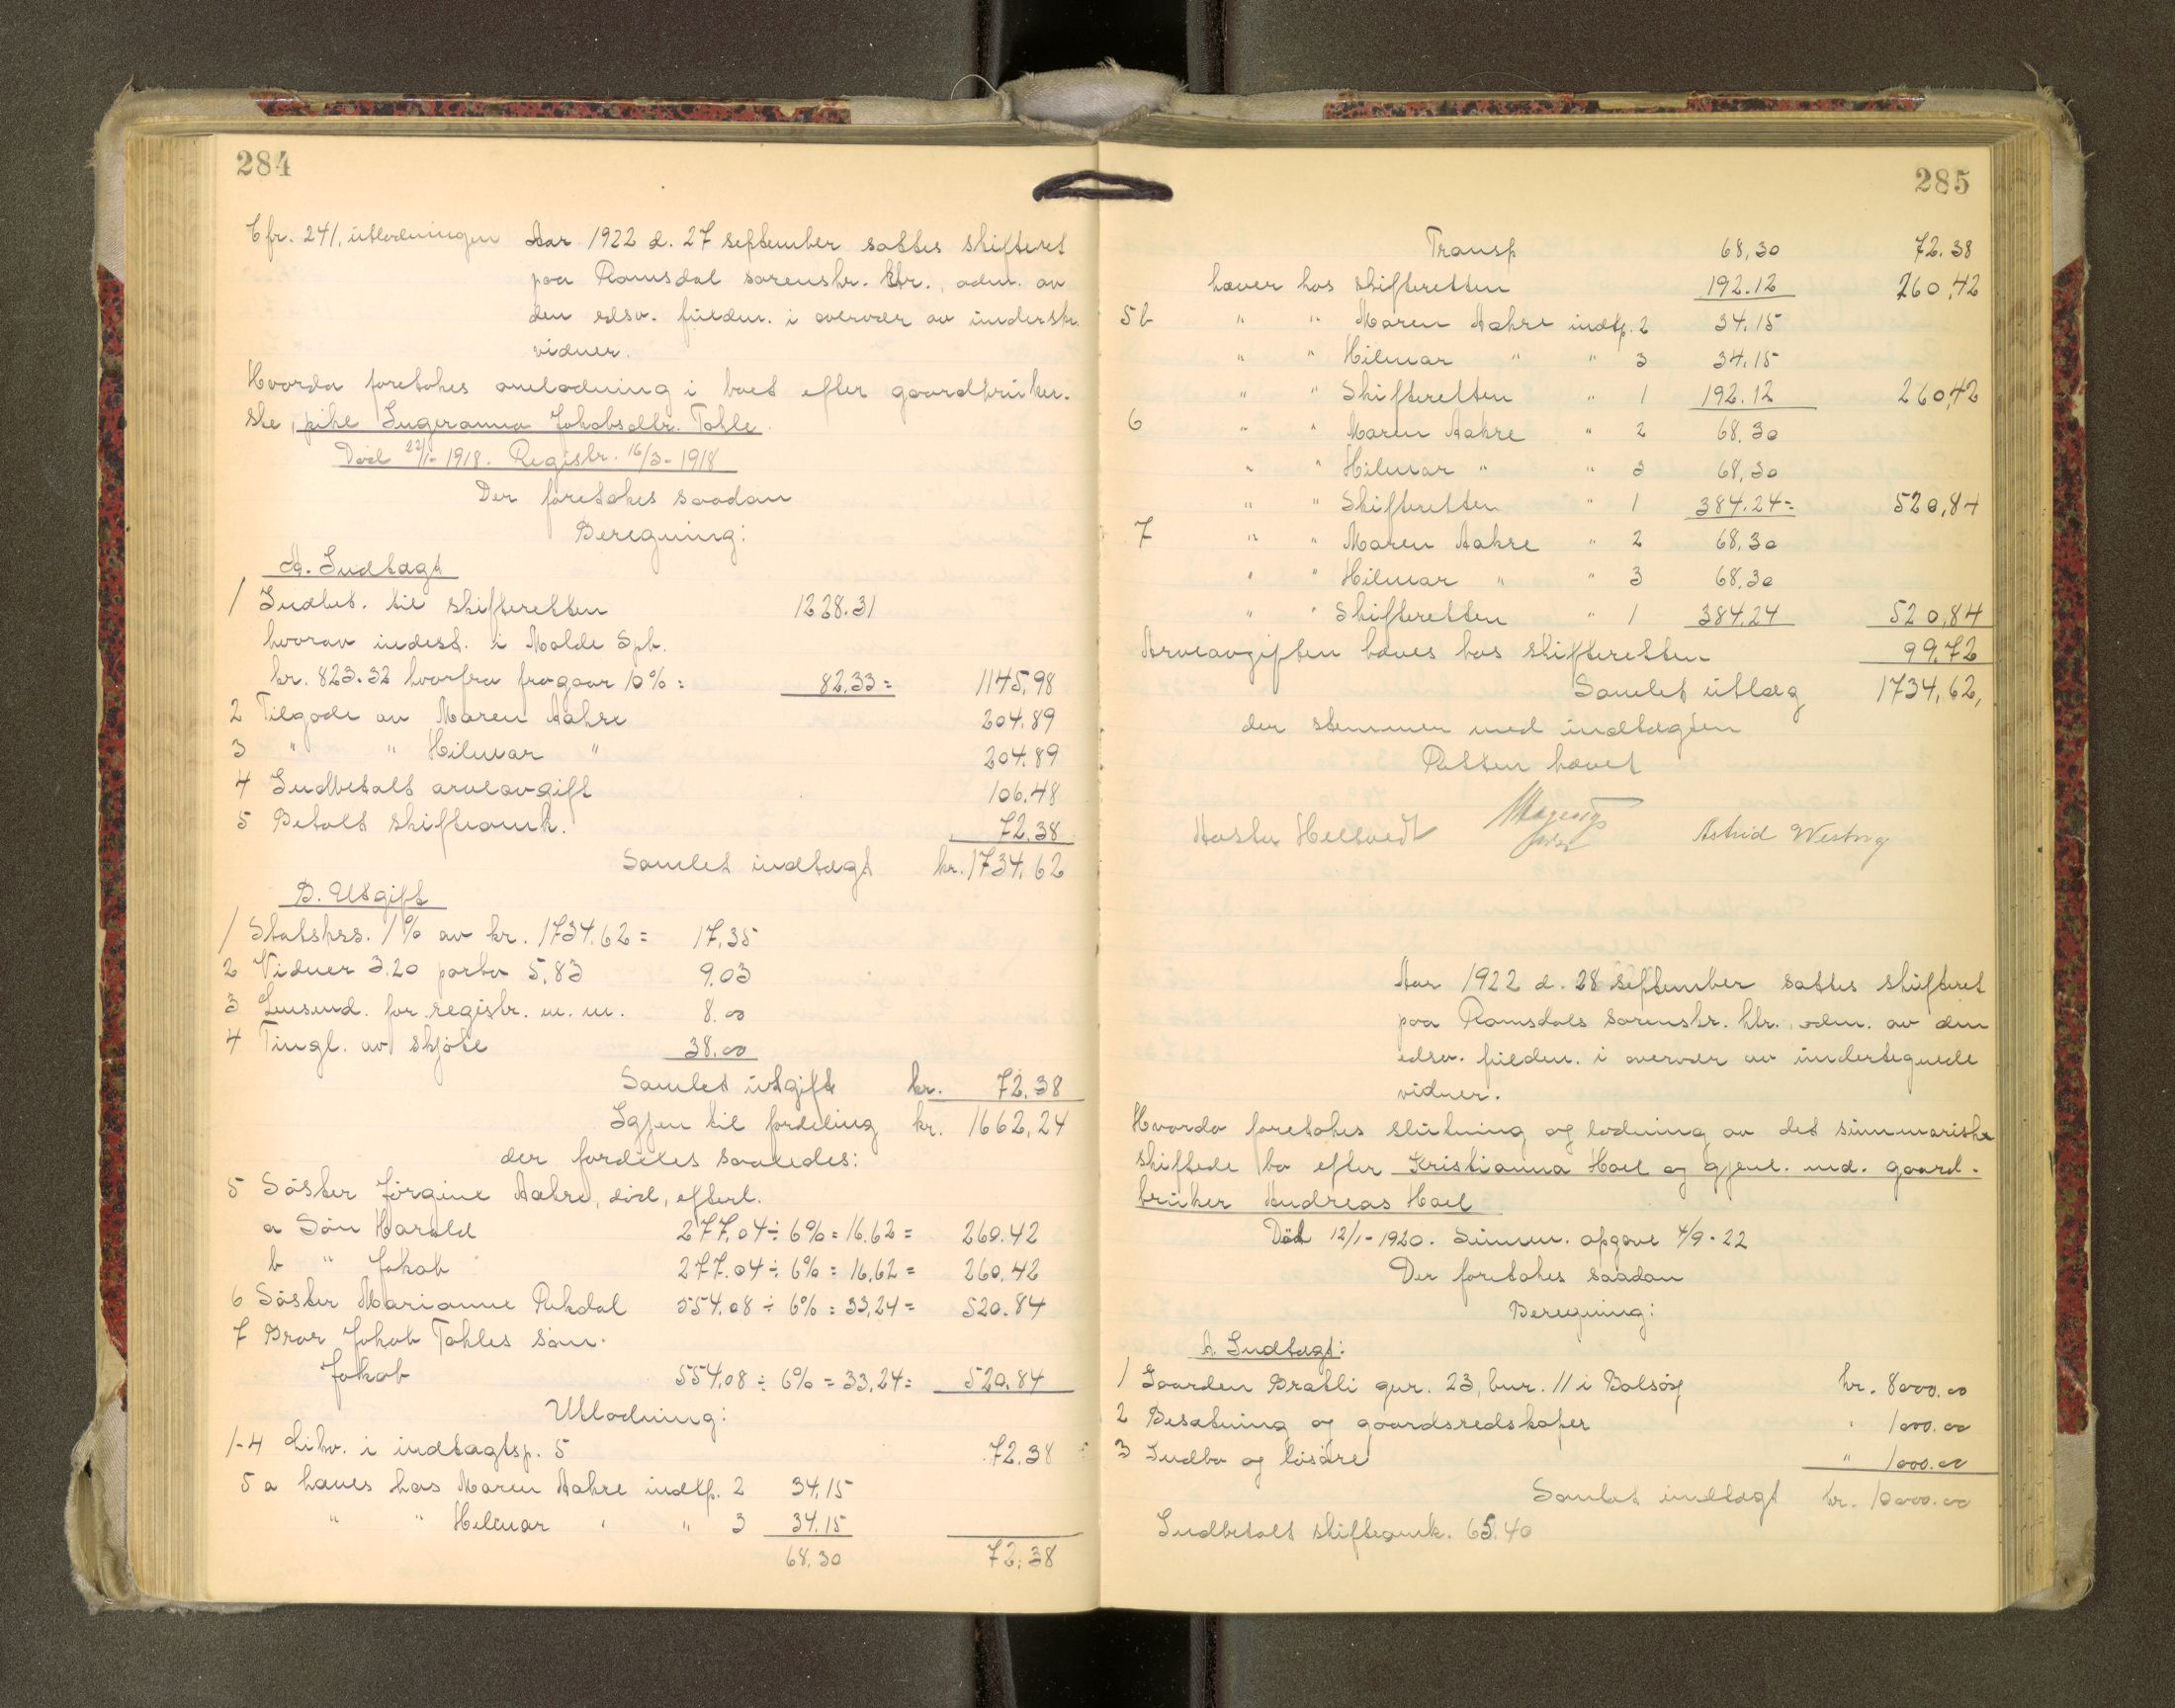 284
Cfr. 241, utlodningen Aar 1922 d. 27 september sattes skifteret
paa Romsdal sorenskr. ktr., adm. av
den edsv. fuldm. i overvær av underskr.
vidner.
Hvorda foretokes omlodning i boet efter gaardbruker-
ske, pike Ingeranna Jakobsdtr. Tokle.
Død 22/1-1918. Registr. 16/3-1918
Der foretokes saadan
Beregning:
A. Indtægt
1 Indbet. til skifteretten 1228.31
hvorav indest. i Molde Spb.
kr. 823.32 hvorfra fragaar 10% = 82.33 = 1145,98
2 Tilgode av Maren Aahre 204.89
3 " " Hilmar " 204.89
4 Indbetalt arveavgift 106.48
5 Betalt skifteomk. 72.38
Samlet indtægt kr. 1734,62
B. Utgift
1 Statskas. 1% av kr. 1734.62 = 17.35
2 Vidner 3.20 porto 5.83 9.03
3 Lensmd. for registr. m. m. 8.00
4 Tingl. av skjøte 38.00
Samlet utgift kr. 72.38
Igjen til fordeling kr. 1662,24
der fordeles saaledes:
5 Søster Jørgine Aahre, død, efterl.
a Søn Harald 277,04 ÷ 6% = 16.62 = 260.42
b " Jakob 277.04 ÷ 6% = 16,62 = 260,42
6 Søster Marianne Rekdal 554,08 ÷ 6% = 33,24 = 520.84
7 Bror Jakob Tokles søn
Jakob 554,08 ÷ 6% = 33,24 = 520.84
Utlodning:
1-4 Likv. i indtægtsp. 5 72.38
5 a haves hos Maren Aahre indtp. 2 34,15
" " Hilmar " " 3 34.15
68.30 72,38
285
Transp 68,30 72.38
haver hos skifteretten 192.12 260,42
5 b " " Maren Aahre indtp. 2 34.15
" " Hilmar " " 3 34.15
" " Skifteretten " 1 192.12 260,42
6 " " Maren Aahre " 2 68.30
" " Hilmar " " 3 68,30
" " Skifteretten " 1 384.24 = 520,84
7 " " Maren Aahre " 2 68.30
" " Hilmar " " 3 68,30
" " Skifteretten " 1 384.24 520,84
Arveavgiften haves hos skifteretten 99.72
Samlet utlæg 1734,62,
der stemmer med indtægten
Retten hævet
Hellvedt Astrid
Aar 1922 d. 28 september sattes skifteret
paa Romsdals sorenskr. ktr., adm. av den
edsv. fuldm. i overvær av undertegnede
vidner.
Hvorda foretokes slutning og lodning av det summarisk
skiftede bo efter Kristianna Hoel og gjenl. md. gaard-
bruker Andreas Hoel
Død 12/1-1920. Summ. opgave 4/9-22
Der foretokes saadan
Beregning:
A. Indtægt:
1 Gaarden Bratli gnr. 23, bnr. 11 i Bolsøy kr. 8000.00
2 Besætning og gaardsredskaper " 1000.00
3 Indbo og løsøre " 1000.00
Samlet indtægt kr. 10000.00
Indbetalt skifteomk. 65.40